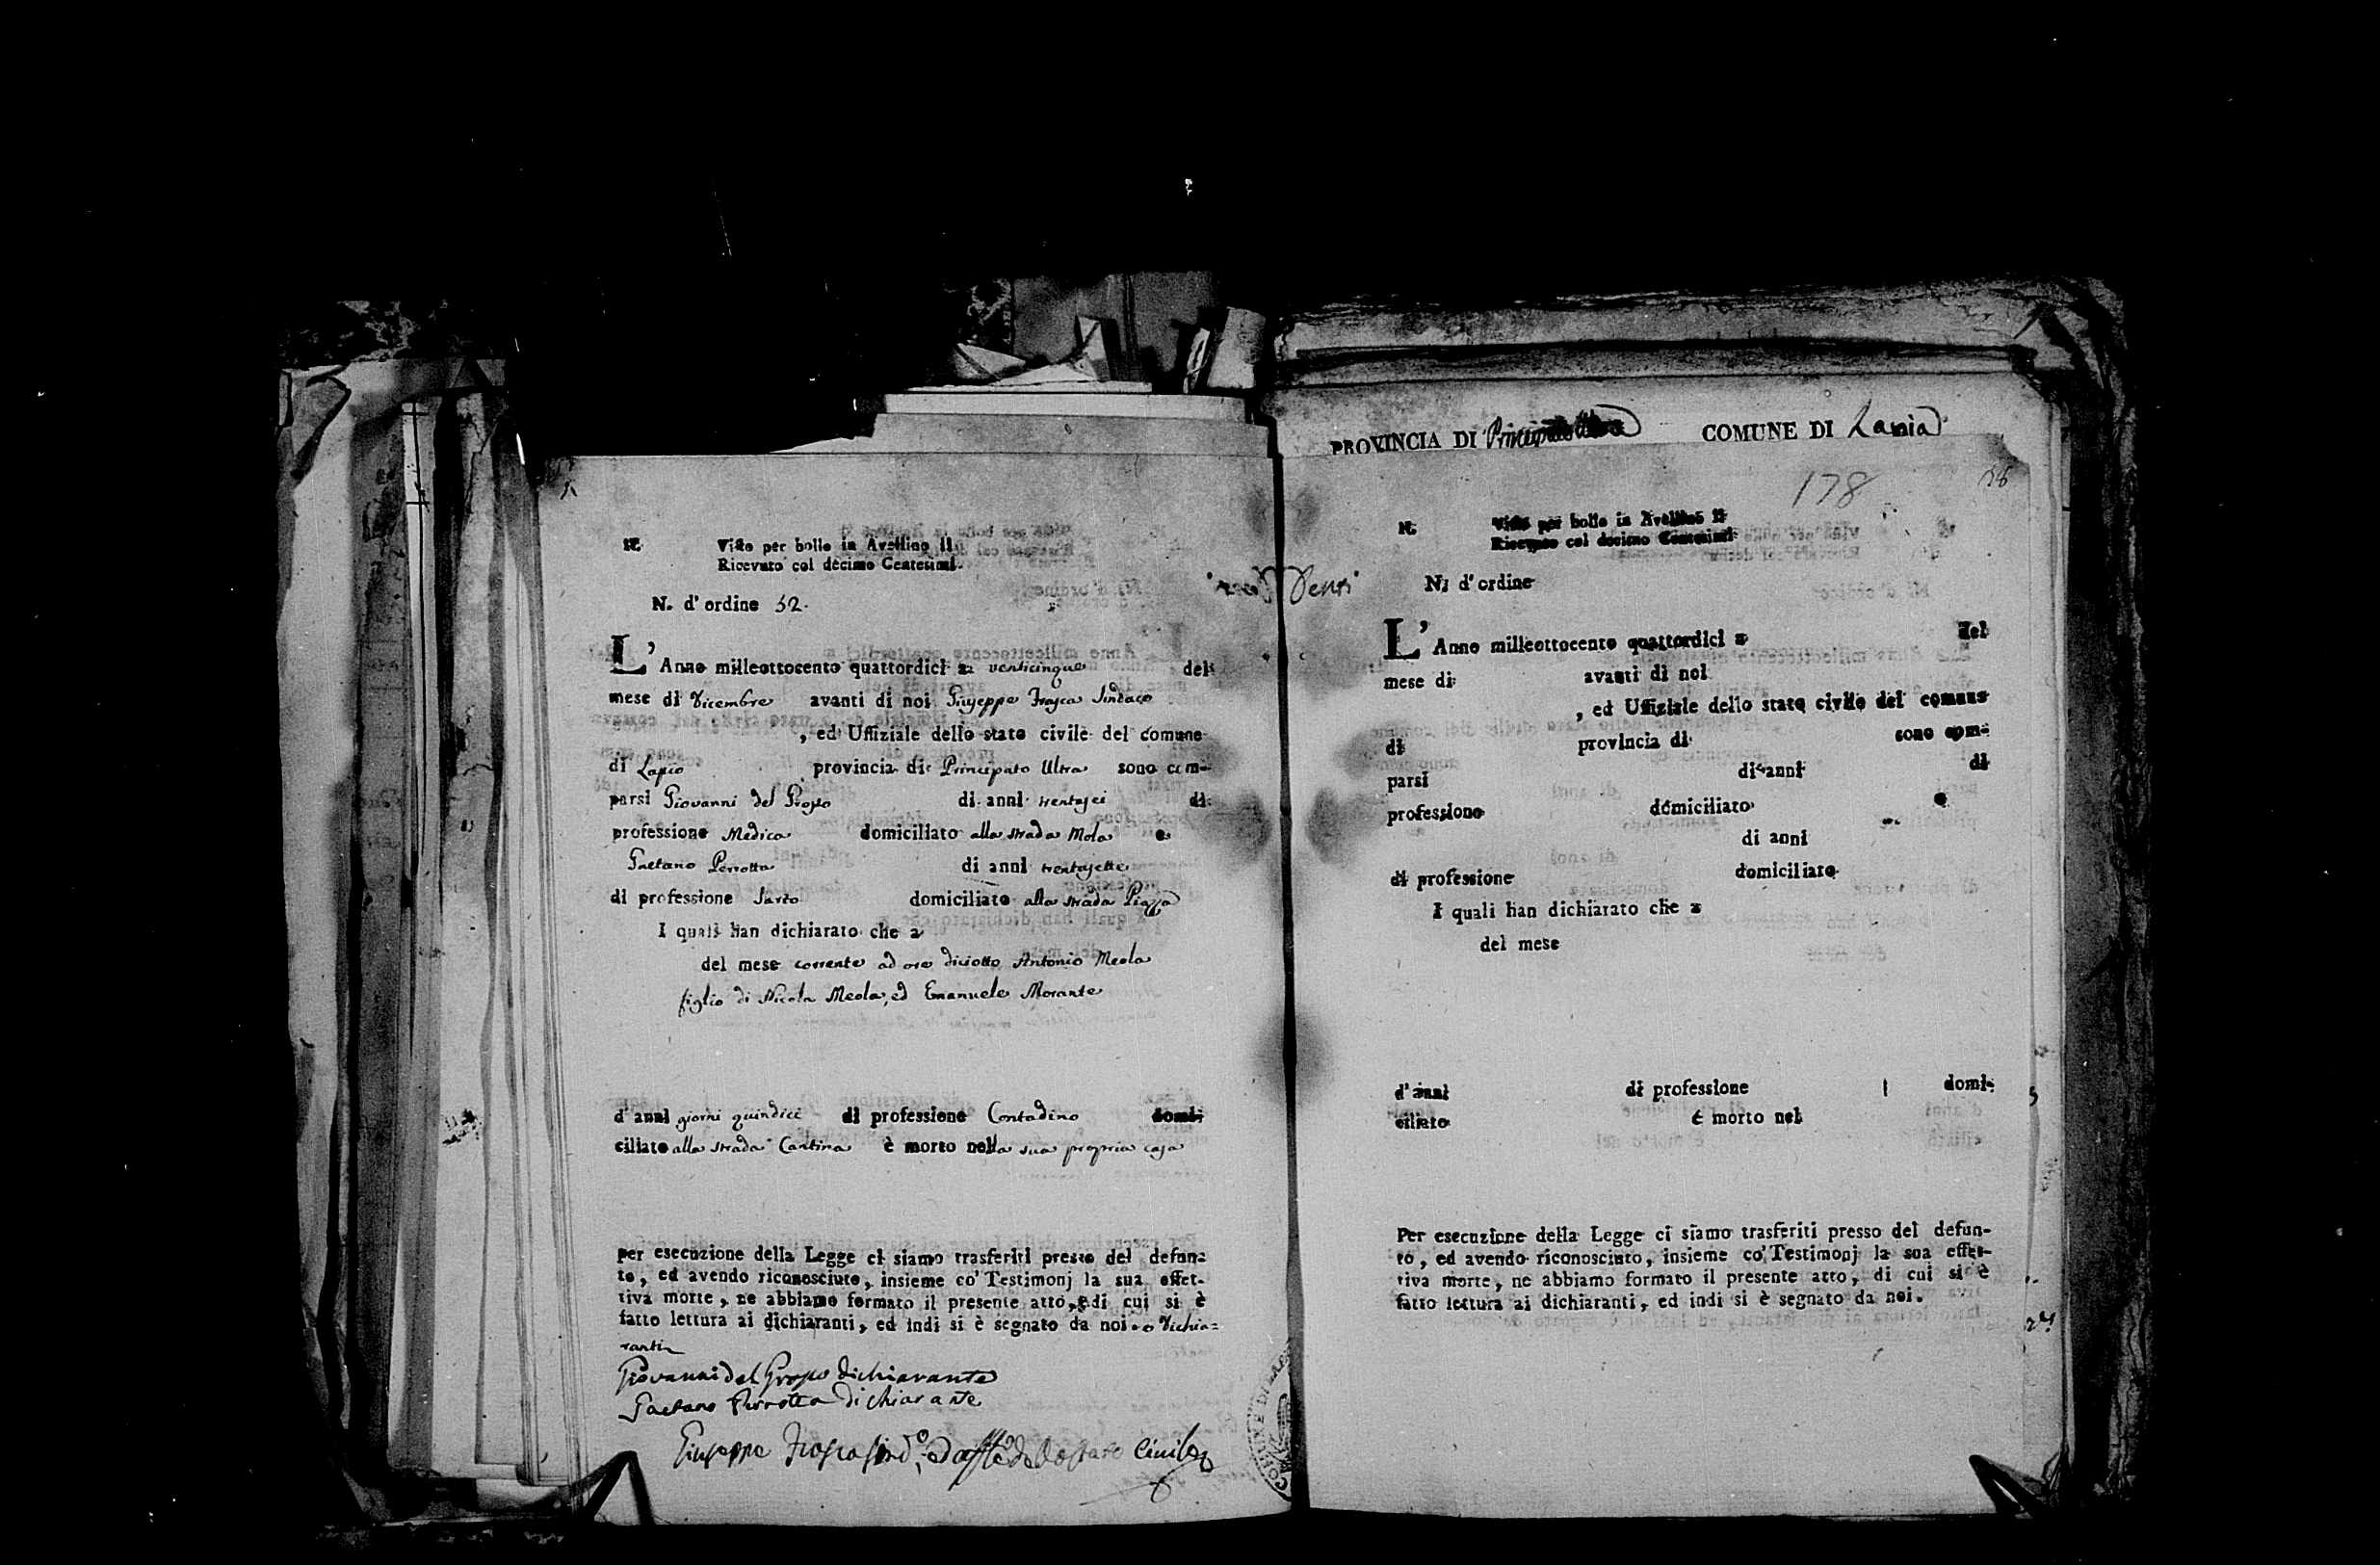 N.
Visto per bollo in Avellino il
Ricevuto col decimo Centesimi.
N. d'ordine 52.
L'Anno milleottocento quattordici a venticinque del
mese di Dicembre avanti di noi Giuseppe Frasca Sindaco
, ed Uffiziale dello stato civile del comune
di Lapio provincia di Principato Ultra sono com-
parsi Giovanni del Grosso di anni trentasei di
professione Medico domiciliato alla strada Mola e
Gaetano Perrotta di anni trentasette
di professione Sarto domiciliato alla strada Piazza
I quali han dichiarato che a
del mese corrente ad ore diciotto Antonio Meola
figlio di Nicola Meola, ed Emanuele Morante
d'anni giorni quindici di professione Contadino domi-
ciliato alla strada Cantina è morto nella sua propria casa
Per esecuzione della Legge ci siamo trasferiti presso del defun-
to, ed avendo riconosciuto, insieme co' Testimonj la sua effet-
tiva morte, ne abbiamo formato il presente atto, di cui si è
fatto lettura ai dichiaranti, ed indi si è segnato da noi e dichia=
ranti
Giovanni del Grosso dichiarante
Gaetano Perrotta dichiarante
Giuseppe Frasca Sind.o, ed dello stato Civile
PROVINCIA DI Principato Ultra COMUNE DI
178
N.
Visto per bollo in Avellino il
Ricevuto col decimo Centesimi
N. d'ordine
L'Anno milleottocento quattordici a del
mese di avanti di noi
, ed Uffiziale dello stato civile del comune
di provincia di sono com-
parsi di anni di
professione domiciliato e
di anni
di professione domiciliato
I quali han dichiarato che a
del mese
d'anni di professione domi-
ciliato è morto nel
Per esecuzione della Legge ci siamo trasferiti presso del defun-
to, ed avendo riconosciuto, insieme co' Testimonj la sua effet-
tiva morte, ne abbiamo formato il presente atto, di cui si è
fatto lettura ai dichiaranti, ed indi si è segnato da noi.